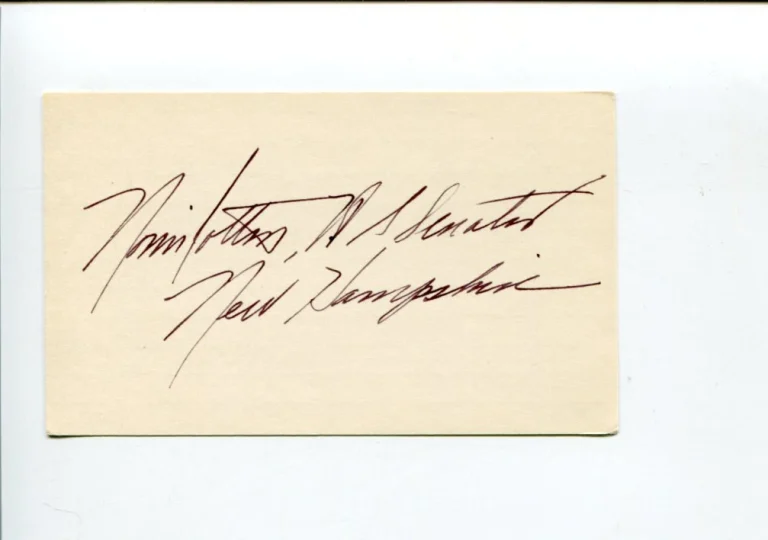 Norris Cotton, U S Senator
New Hampshire